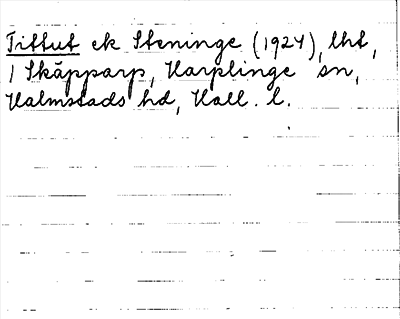 Tittut ek Steninge (1924), lht,
1 Skäpparp, Harplinge sn,
Halmstads hd, Hall. l.